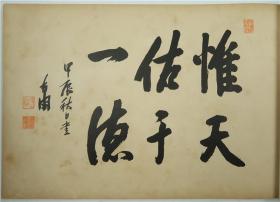 惟天
佑于
一德
甲辰秋日書